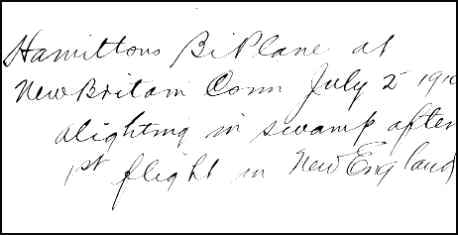 Hamiltons BiPlane at
New Britain Conn July 2 1910
alighting in swamp after
1st flight in New England